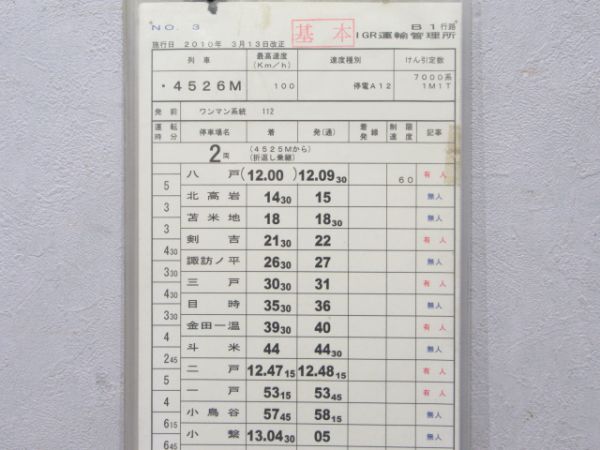 NO. 3 基本 B1行路
施行日 2010年 3月13日改正 IGR運輸管理所
列車 最高速度(Km/h) 速度種別 けん引定数
・4526M 100 停電A12 7000系 1M1T
発前 ワンマン系統 112
運転時分 停車場名 着 発(通) 着発線 制限速度 記事
2両 (4525Mから)(折返し乗継)
八戸 (12.00) 12.09 30 60 有人
5
北高岩 14 30 15 無人
3
苫米地 18 18 30 無人
3
剣吉 21 30 22 有人
4 30
諏訪ノ平 26 30 27 無人
3 30
三戸 30 30 31 有人
4 30
目時 35 30 36 無人
3 30
金田一温 39 30 40 有人
4
斗米 44 44 30 無人
2 45
二戸 12.47 15 12.48 15 有人
5
一戸 53 15 53 45 有人
4
小鳥谷 57 45 58 15 無人
6 15
小繋 13.04 30 05 無人
6 45